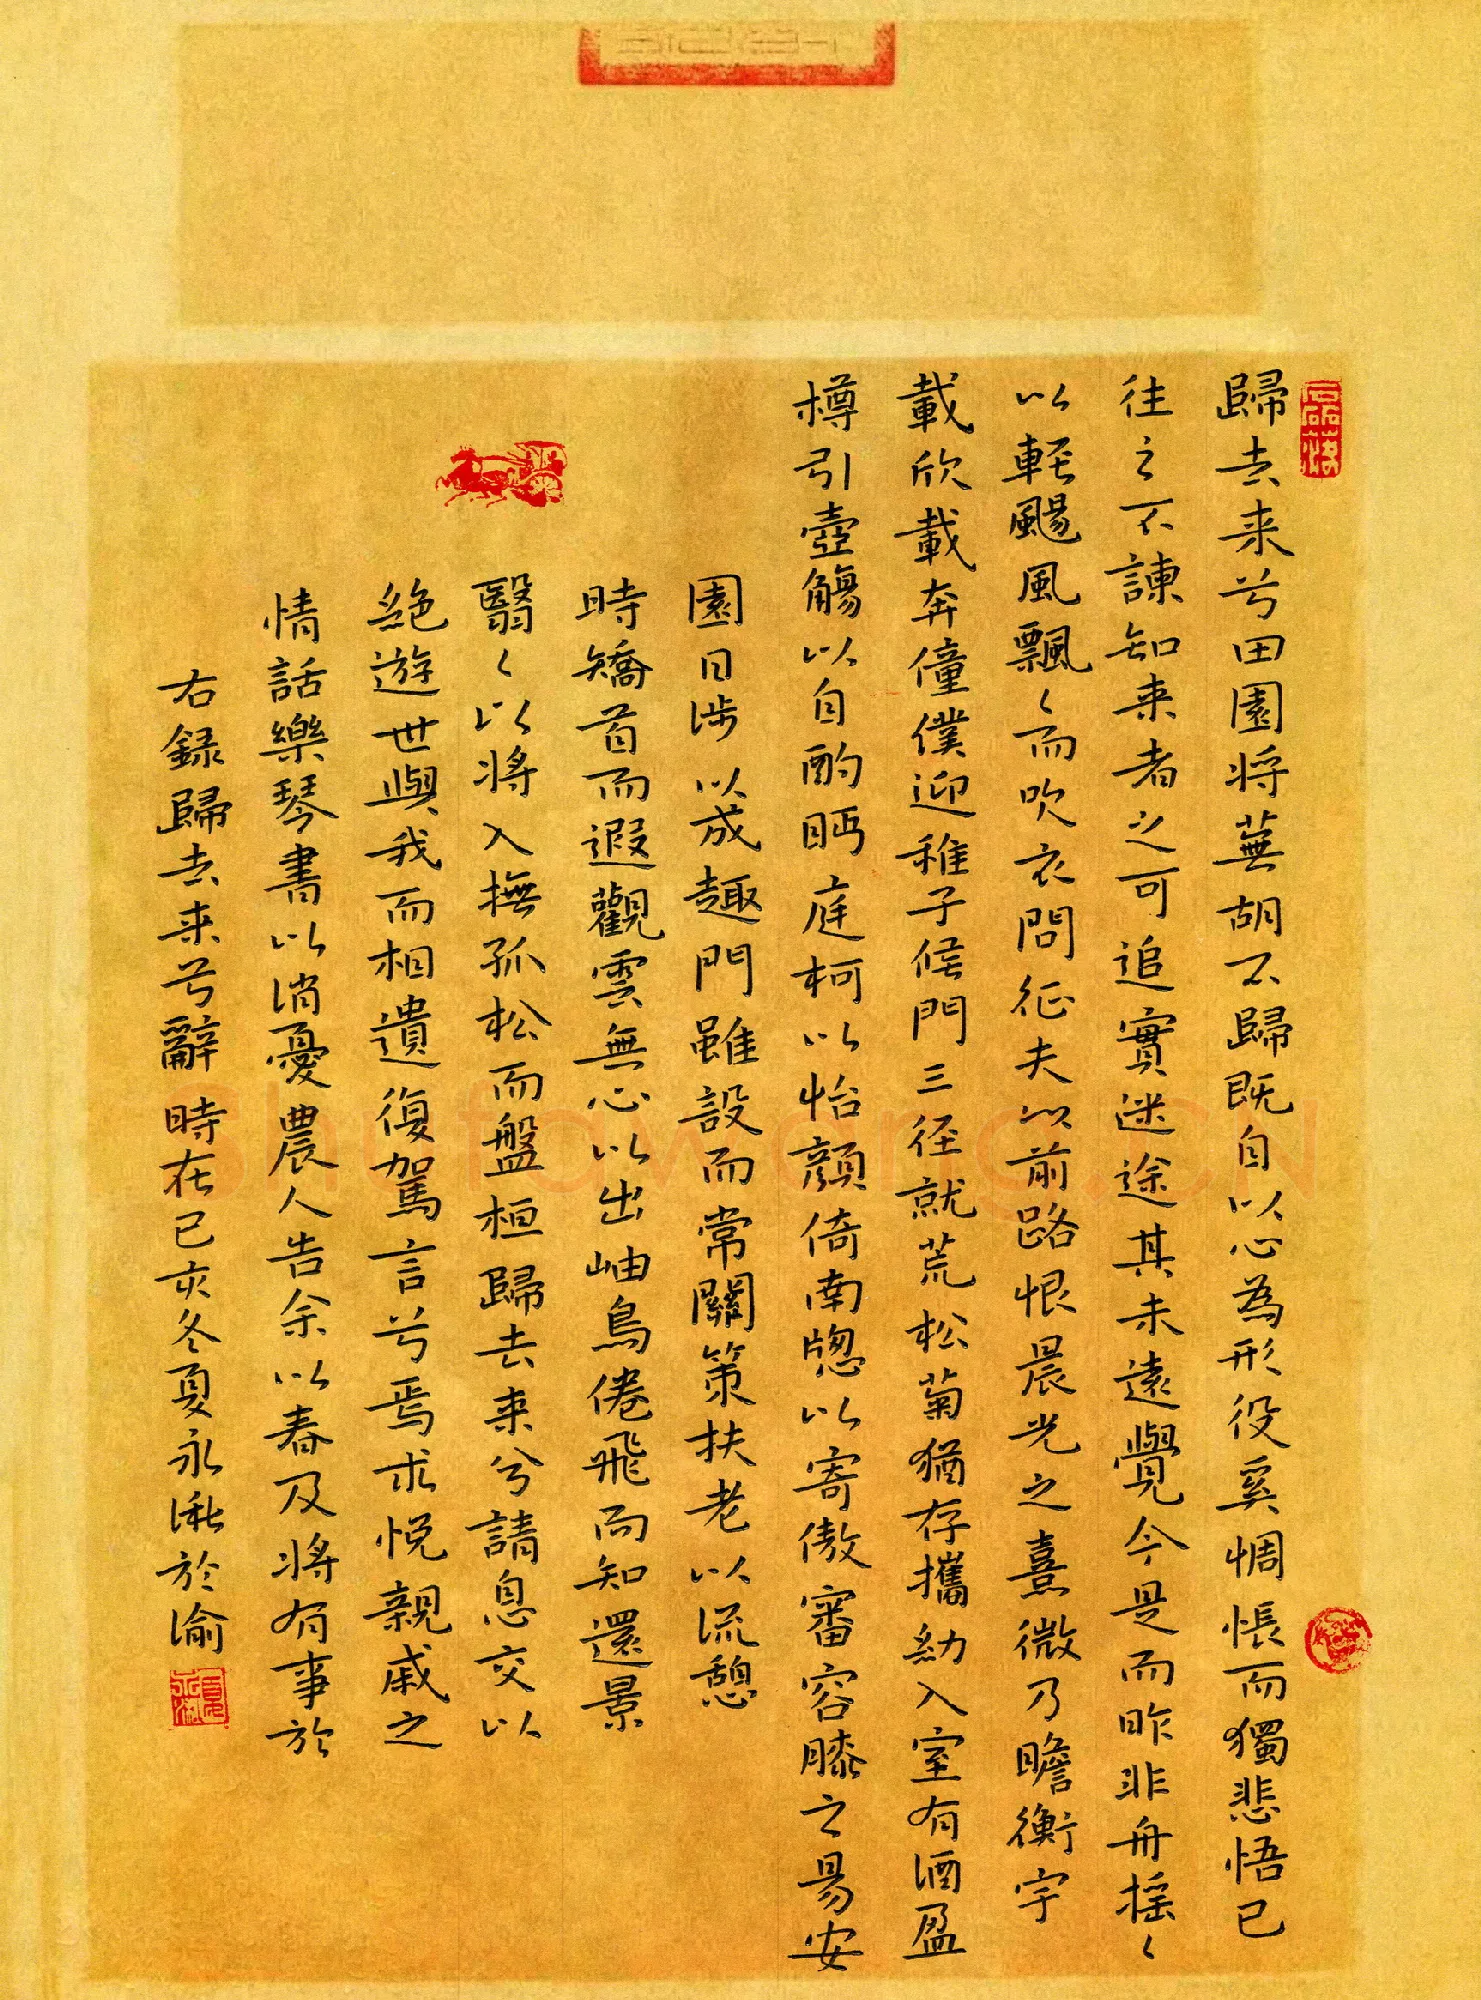 歸去来兮田園将蕪胡不歸既自以心為形役奚惆悵而獨悲悟已
往之不諫知来者之可追實迷途其未遠覺今是而昨非舟摇〻
以輕颺風飄〻而吹衣問征夫以前路恨晨光之熹微乃瞻衡宇
載欣載奔僮僕迎稚子候門三径就荒松菊猶存攜幼入室有酒盈
樽引壺觴以自酌眄庭柯以怡顔倚南牕以寄傲審容膝之易安
園日涉以成趣門雖設而常關策扶老以流憩
時矯首而遐觀雲無心以出岫鳥倦飛而知還景
翳〻以将入撫孤松而盤桓歸去来兮請息交以
絕遊世與我而相遺復駕言兮焉求悅親戚之
情話樂琴書以消憂農人告余以春及将有事於
右録歸去来兮辭時在己亥冬夏永湫於渝
shufawang.CN